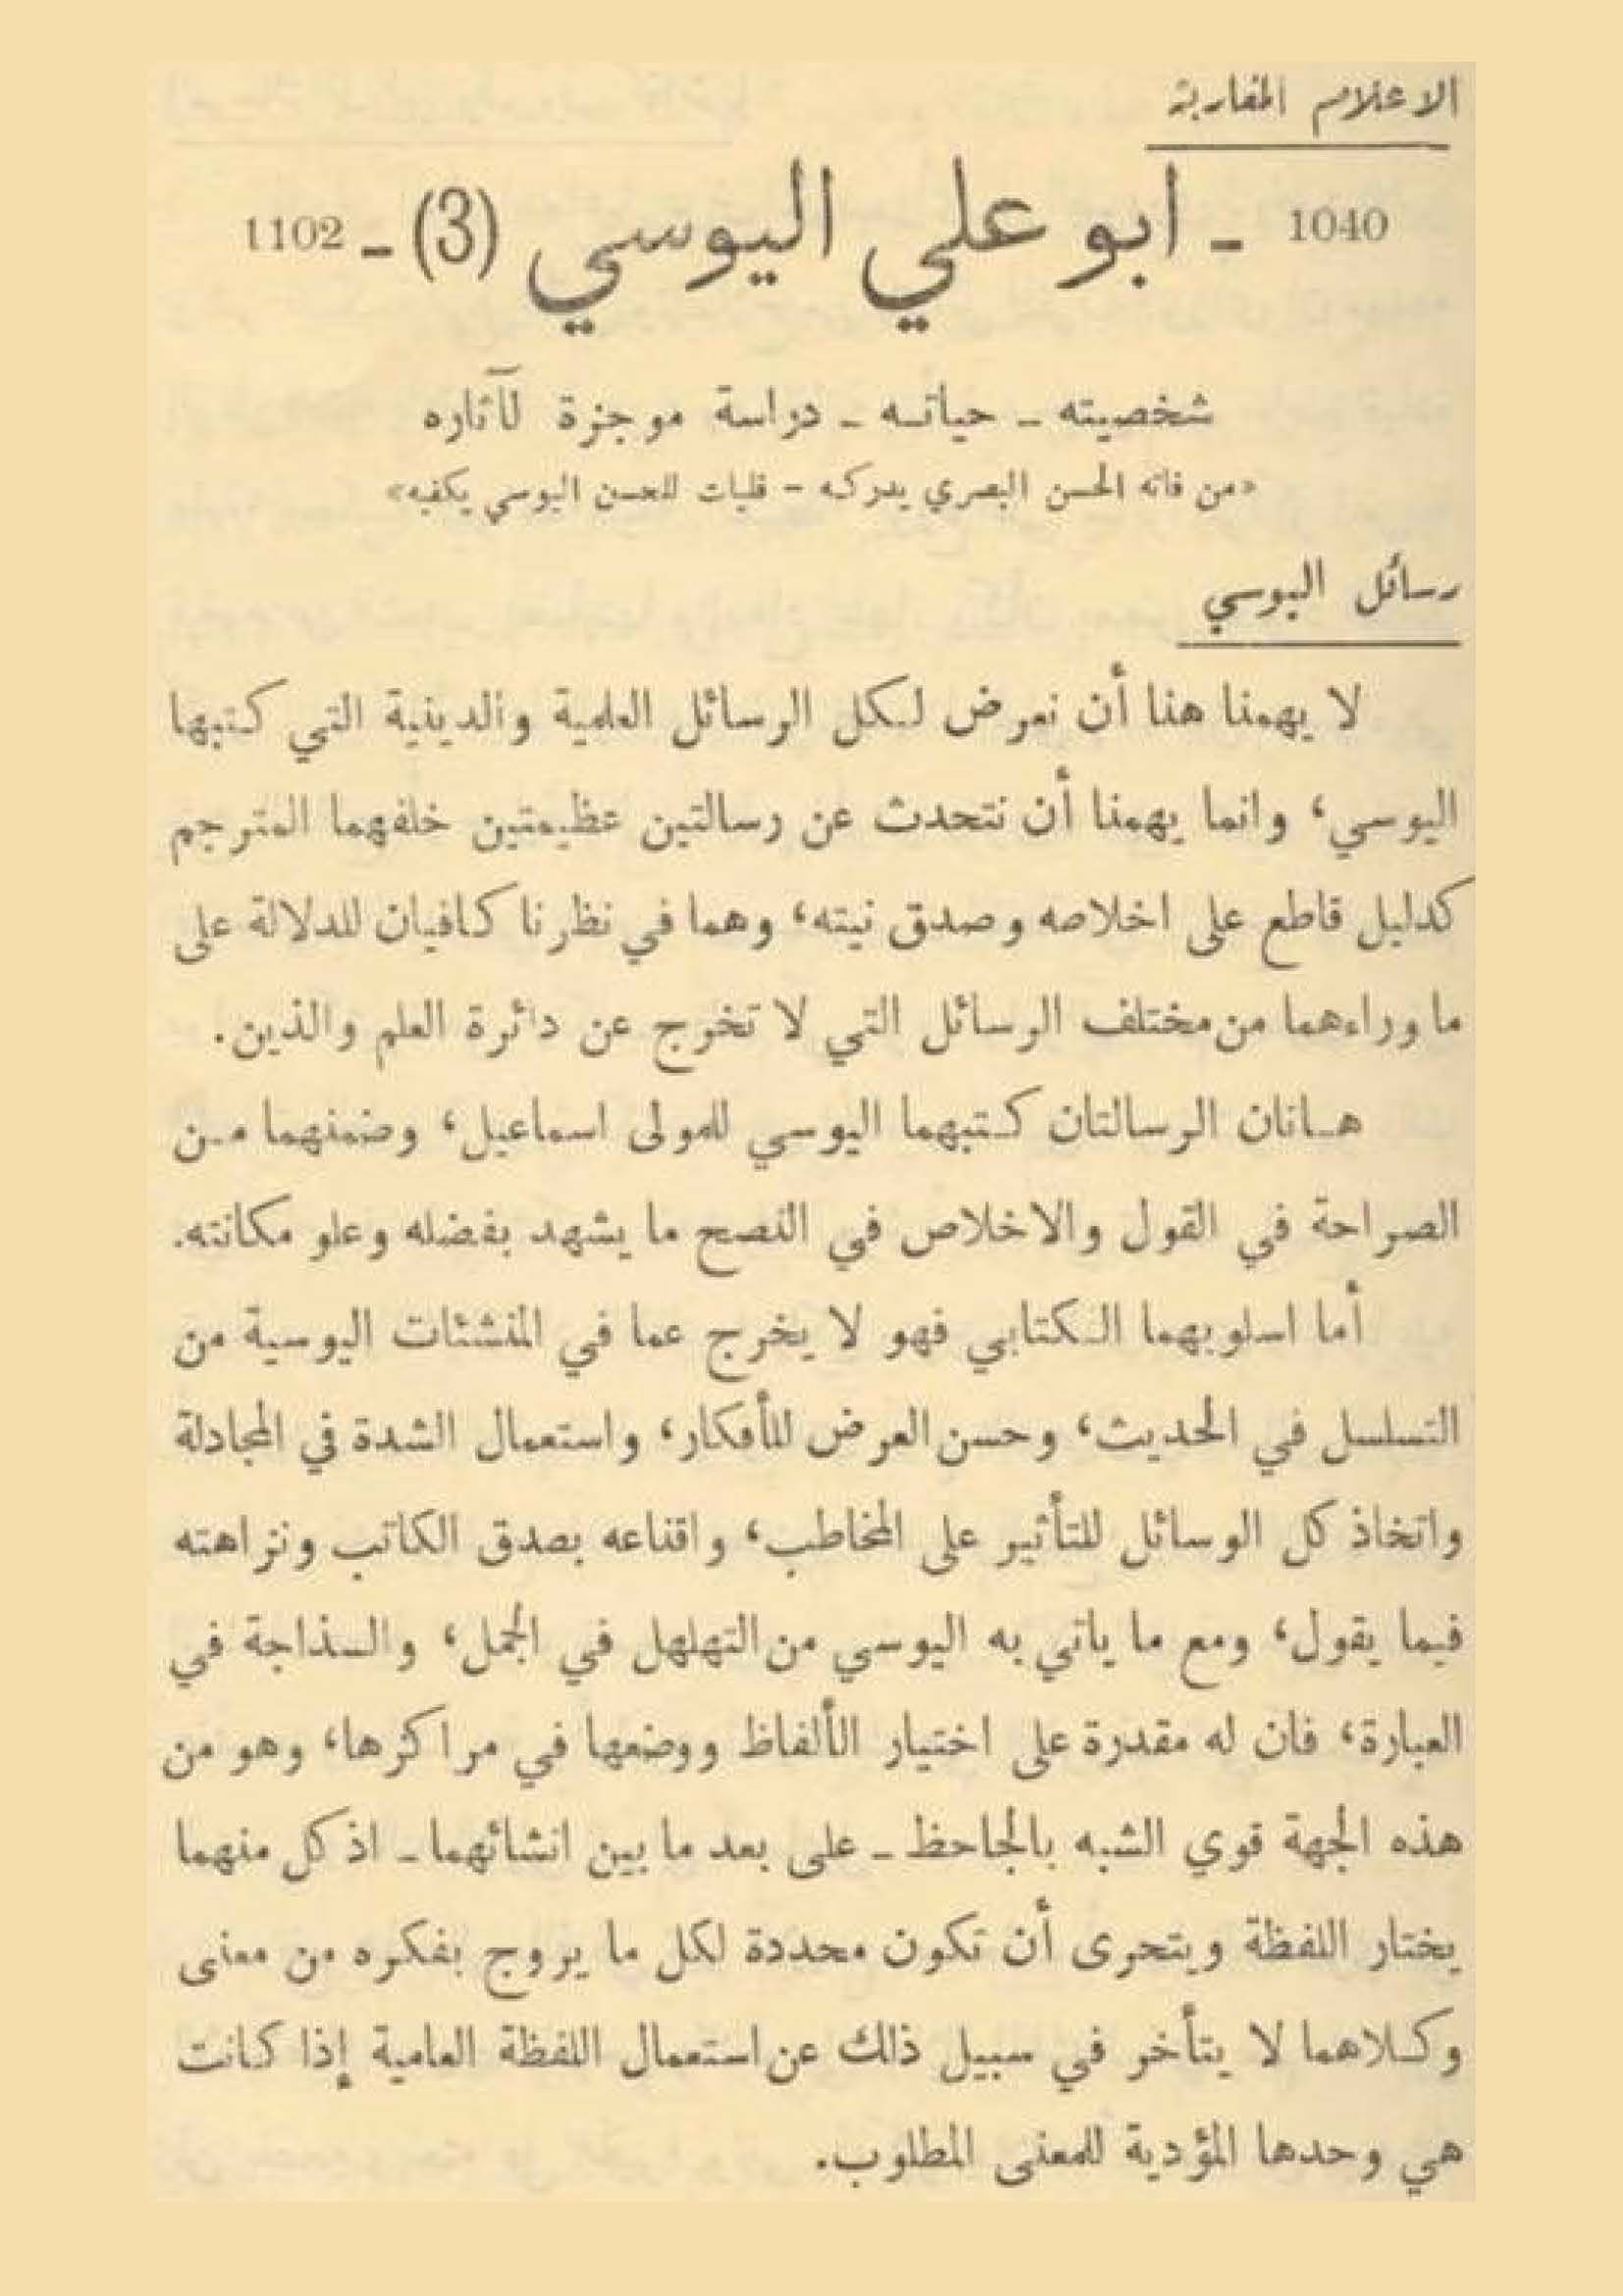 الاعلام المغاربة
1040 - ابو علي اليوسي (3) - 1102
شخصيته - حياته - دراسة موجزة لآثاره
«من فاته الحسن البصري يدركه - فليات للحسن اليوسي يكفيه»
رسائل اليوسي
لا يهمنا هنا أن نعرض لكل الرسائل العلمية والدينية التي كتبها
اليوسي، وانما يهمنا أن نتحدث عن رسالتين عظيمتين خلفهما المترجم
كدليل قاطع على اخلاصه وصدق نيته، وهما في نظرنا كافيان للدلالة على
ما وراءهما من مختلف الرسائل التي لا تخرج عن دائرة العلم والدين.
هاتان الرسالتان كتبهما اليوسي للمولى اسماعيل، وضمنهما من
الصراحة في القول والاخلاص في النصح ما يشهد بفضله وعلو مكانته.
أما اسلوبهما الكتابي فهو لا يخرج عما في المنشئات اليوسية من
التسلسل في الحديث، وحسن العرض للأفكار، واستعمال الشدة في المجادلة
واتخاذ كل الوسائل للتأثير على المخاطب، واقناعه بصدق الكاتب ونزاهته
فيما يقول، ومع ما ياتي به اليوسي من التهلهل في الجمل، والسذاجة في
العبارة، فان له مقدرة على اختيار الألفاظ ووضعها في مراكزها، وهو من
هذه الجهة قوي الشبه بالجاحظ - على بعد ما بين انشائهما - اذ كل منهما
يختار اللفظة ويتحرى أن تكون محددة لكل ما يروج بفكره من معنى
وكلاهما لا يتأخر في سبيل ذلك عن استعمال اللفظة العامية إذا كانت
هي وحدها المؤدية للمعنى المطلوب.